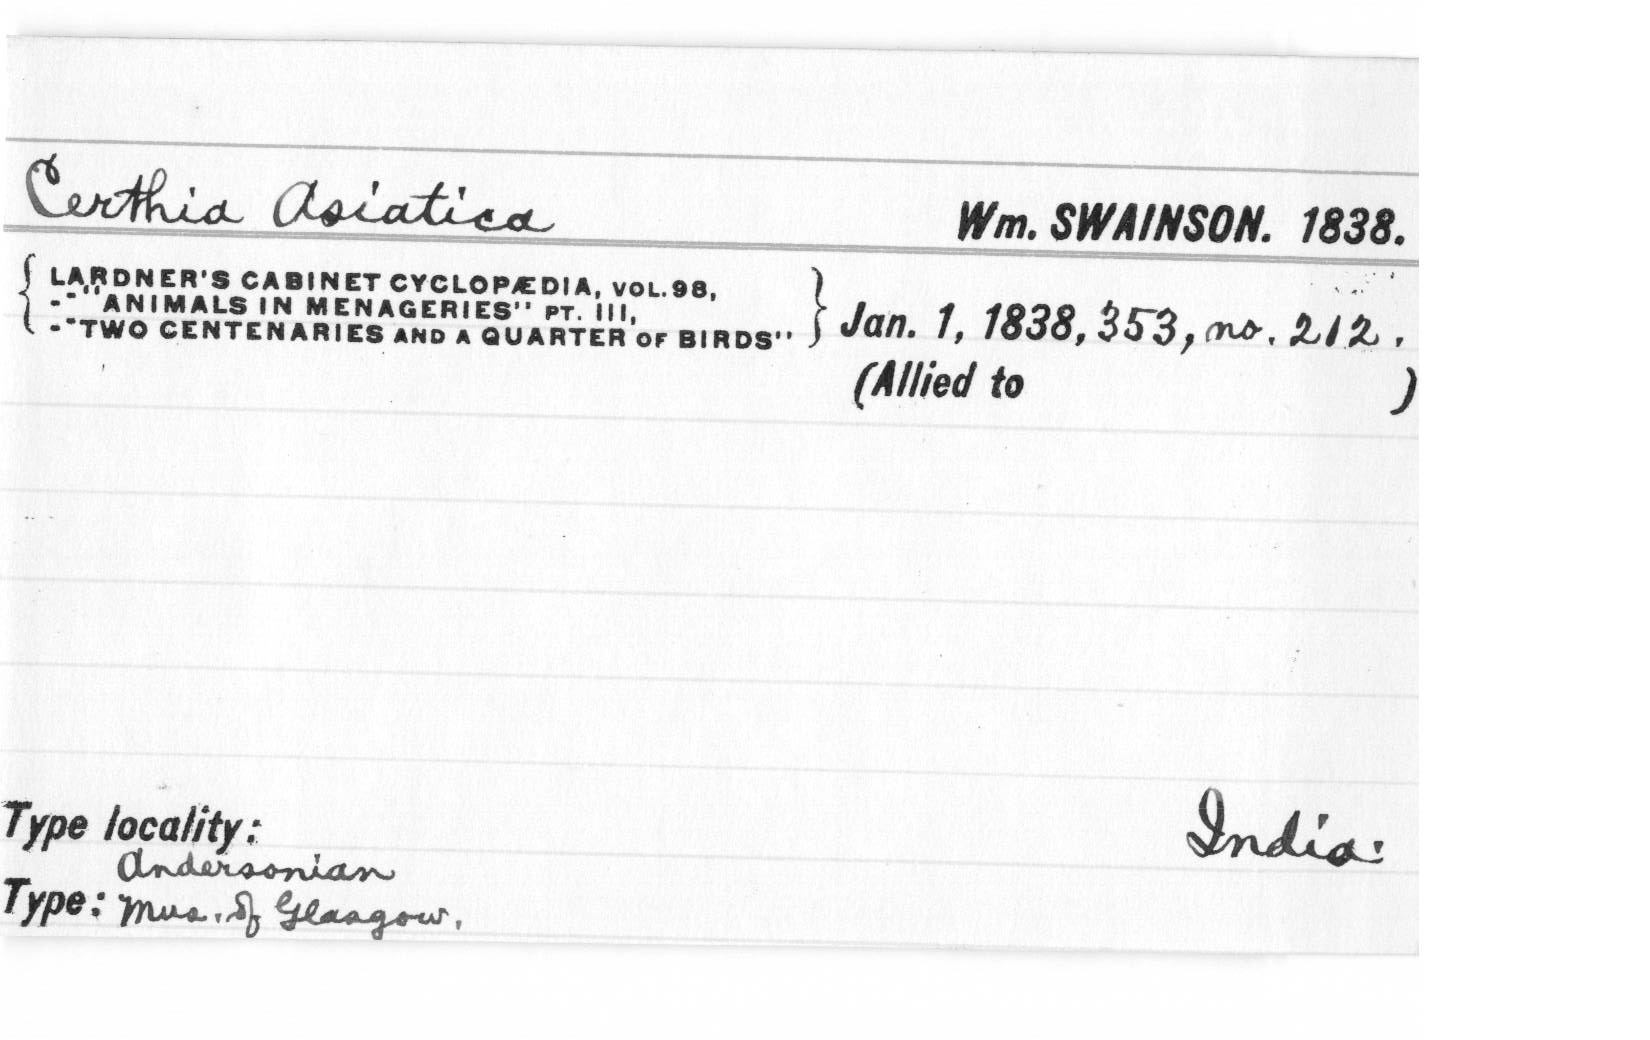 Certhia Asiatica Wm. SWAINSON. 1838.
{ LARDNER'S CABINET CYCLOPÆDIA, VOL. 98,
-"ANIMALS IN MENAGERIES" PT. III,
-"TWO CENTENARIES AND A QUARTER OF BIRDS" } Jan. 1, 1838, 353, no. 212.
(Allied to )
Type locality: India.
Andersonian
Type: Mus. of Glasgow.